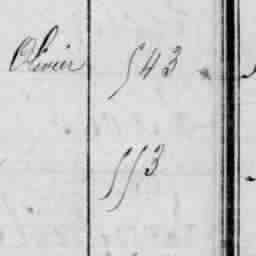 Olivier 543
553